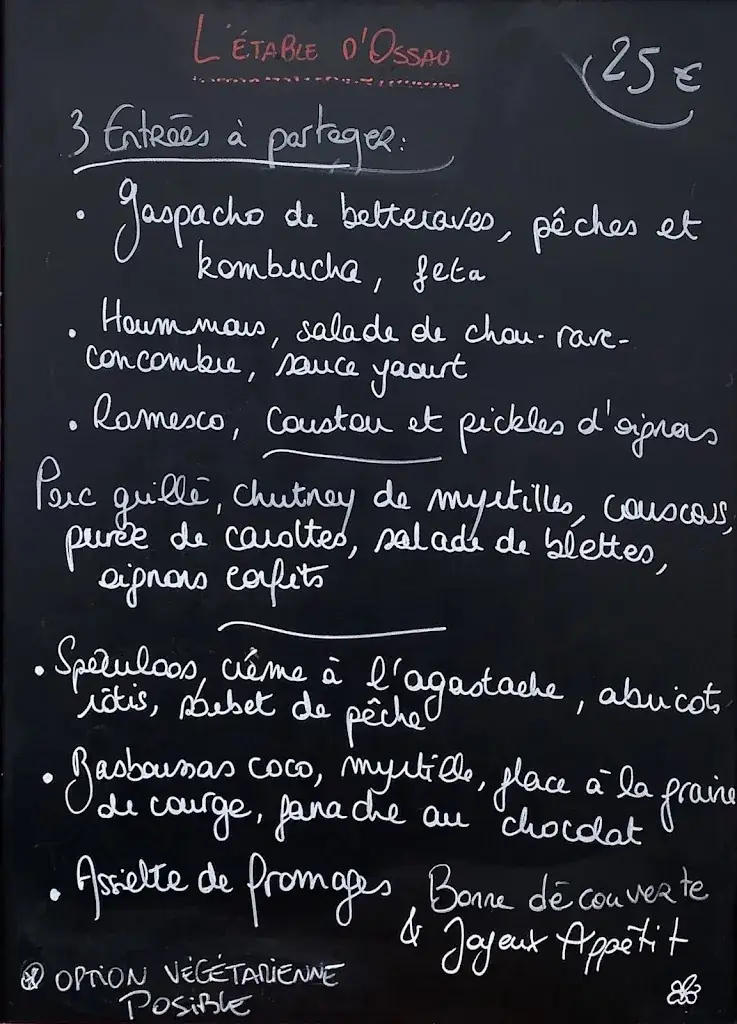 L'ÉTABLE D'OSSAU
25 €
3 Entrées à partager:
• Gaspacho de betteraves, pêches et
kombucha, feta
• Hoummous, salade de chou-rave-
concombre, sauce yaourt
• Romesco, Coustou et pickles d'oignons
Porc grillé, chutney de myrtilles, couscous,
purée de carottes, salade de blettes,
oignons confits
• Spéculoos, crème à l'agastache, abricots
rôtis, sorbet de pêche
• Basboussas coco, myrtille, glace à la graine
de courge, ganache au chocolat
• Assiette de fromages
Bonne découverte
& Joyeux Appétit
OPTION VÉGÉTARIENNE
POSIBLE